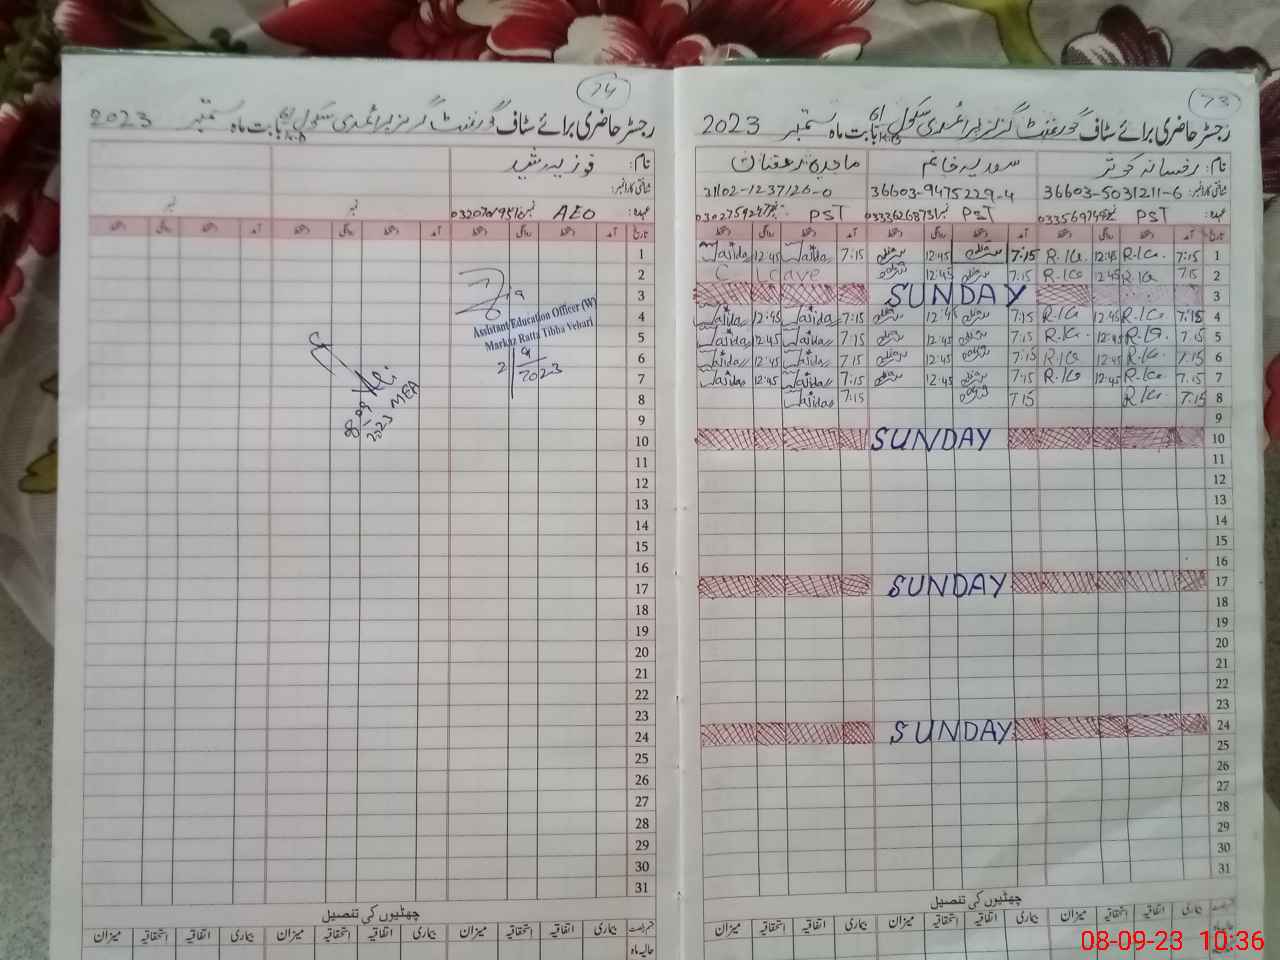 73
رجسٹر حاضری برائے سٹاف گورنمنٹ گرلز پرائمری سکول بابت ماہ ستمبر 2023
نام: رخسانہ کوثر سعدیہ خانم ماجدہ رمضان
شناختی کارڈ نمبر: 36603-5031211-6 36603-9475229-4 31102-1237126-0
عہدہ: PST PST PST
تاریخ آمد دستخط روانگی دستخط آمد دستخط روانگی دستخط آمد دستخط روانگی دستخط
1 7:15 R.Ka. 12:45 R.Ka. 7:15 12:45 7:15 Majida 12:45 Majida
2 7:15 R.Ka 12:45 R.Ka 7:15 12:45 C Leave
3 SUNDAY
4 7:15 R.Ka 12:45 R.Ka 7:15 12:45 7:15 Majida 12:45 Majida
5 7:15 R.Ka. 12:45 R.Ka. 7:15 12:45 7:15 Majida 12:45 Majida
6 7:15 R.Ka. 12:45 R.Ka 7:15 12:45 7:15 Majida 12:45 Majida
7 7:15 R.Ka 12:45 R.Ka 7:15 12:45 7:15 Majida 12:45 Majida
8 7:15 R.Ka 7:15 7:15 Majida
9
10 SUNDAY
11
12
13
14
15
16
17 SUNDAY
18
19
20
21
22
23
24 SUNDAY
25
26
27
28
29
30
31
چھٹیوں کی تفصیل
بیماری اتفاقیہ استحقاقیہ میزان بیماری اتفاقیہ استحقاقیہ میزان بیماری اتفاقیہ استحقاقیہ میزان
حالیہ ماہ
74
رجسٹر حاضری برائے سٹاف گورنمنٹ گرلز پرائمری سکول بابت ماہ ستمبر 2023
نام: فوزیہ رشید
شناختی کارڈ نمبر:
عہدہ: AEO نمبر نمبر نمبر
تاریخ آمد دستخط روانگی دستخط آمد دستخط روانگی دستخط آمد دستخط روانگی دستخط
1
2
3
Assistant Education Officer (W)
4
Markaz Ratta Tibba Vehari
5
2/9/2023
6
7
8
08-09-2023 MEA
9
10
11
12
13
14
15
16
17
18
19
20
21
22
23
24
25
26
27
28
29
30
31
چھٹیوں کی تفصیل
بیماری اتفاقیہ استحقاقیہ میزان بیماری اتفاقیہ استحقاقیہ میزان بیماری اتفاقیہ استحقاقیہ میزان
حالیہ ماہ
08-09-23 10:36